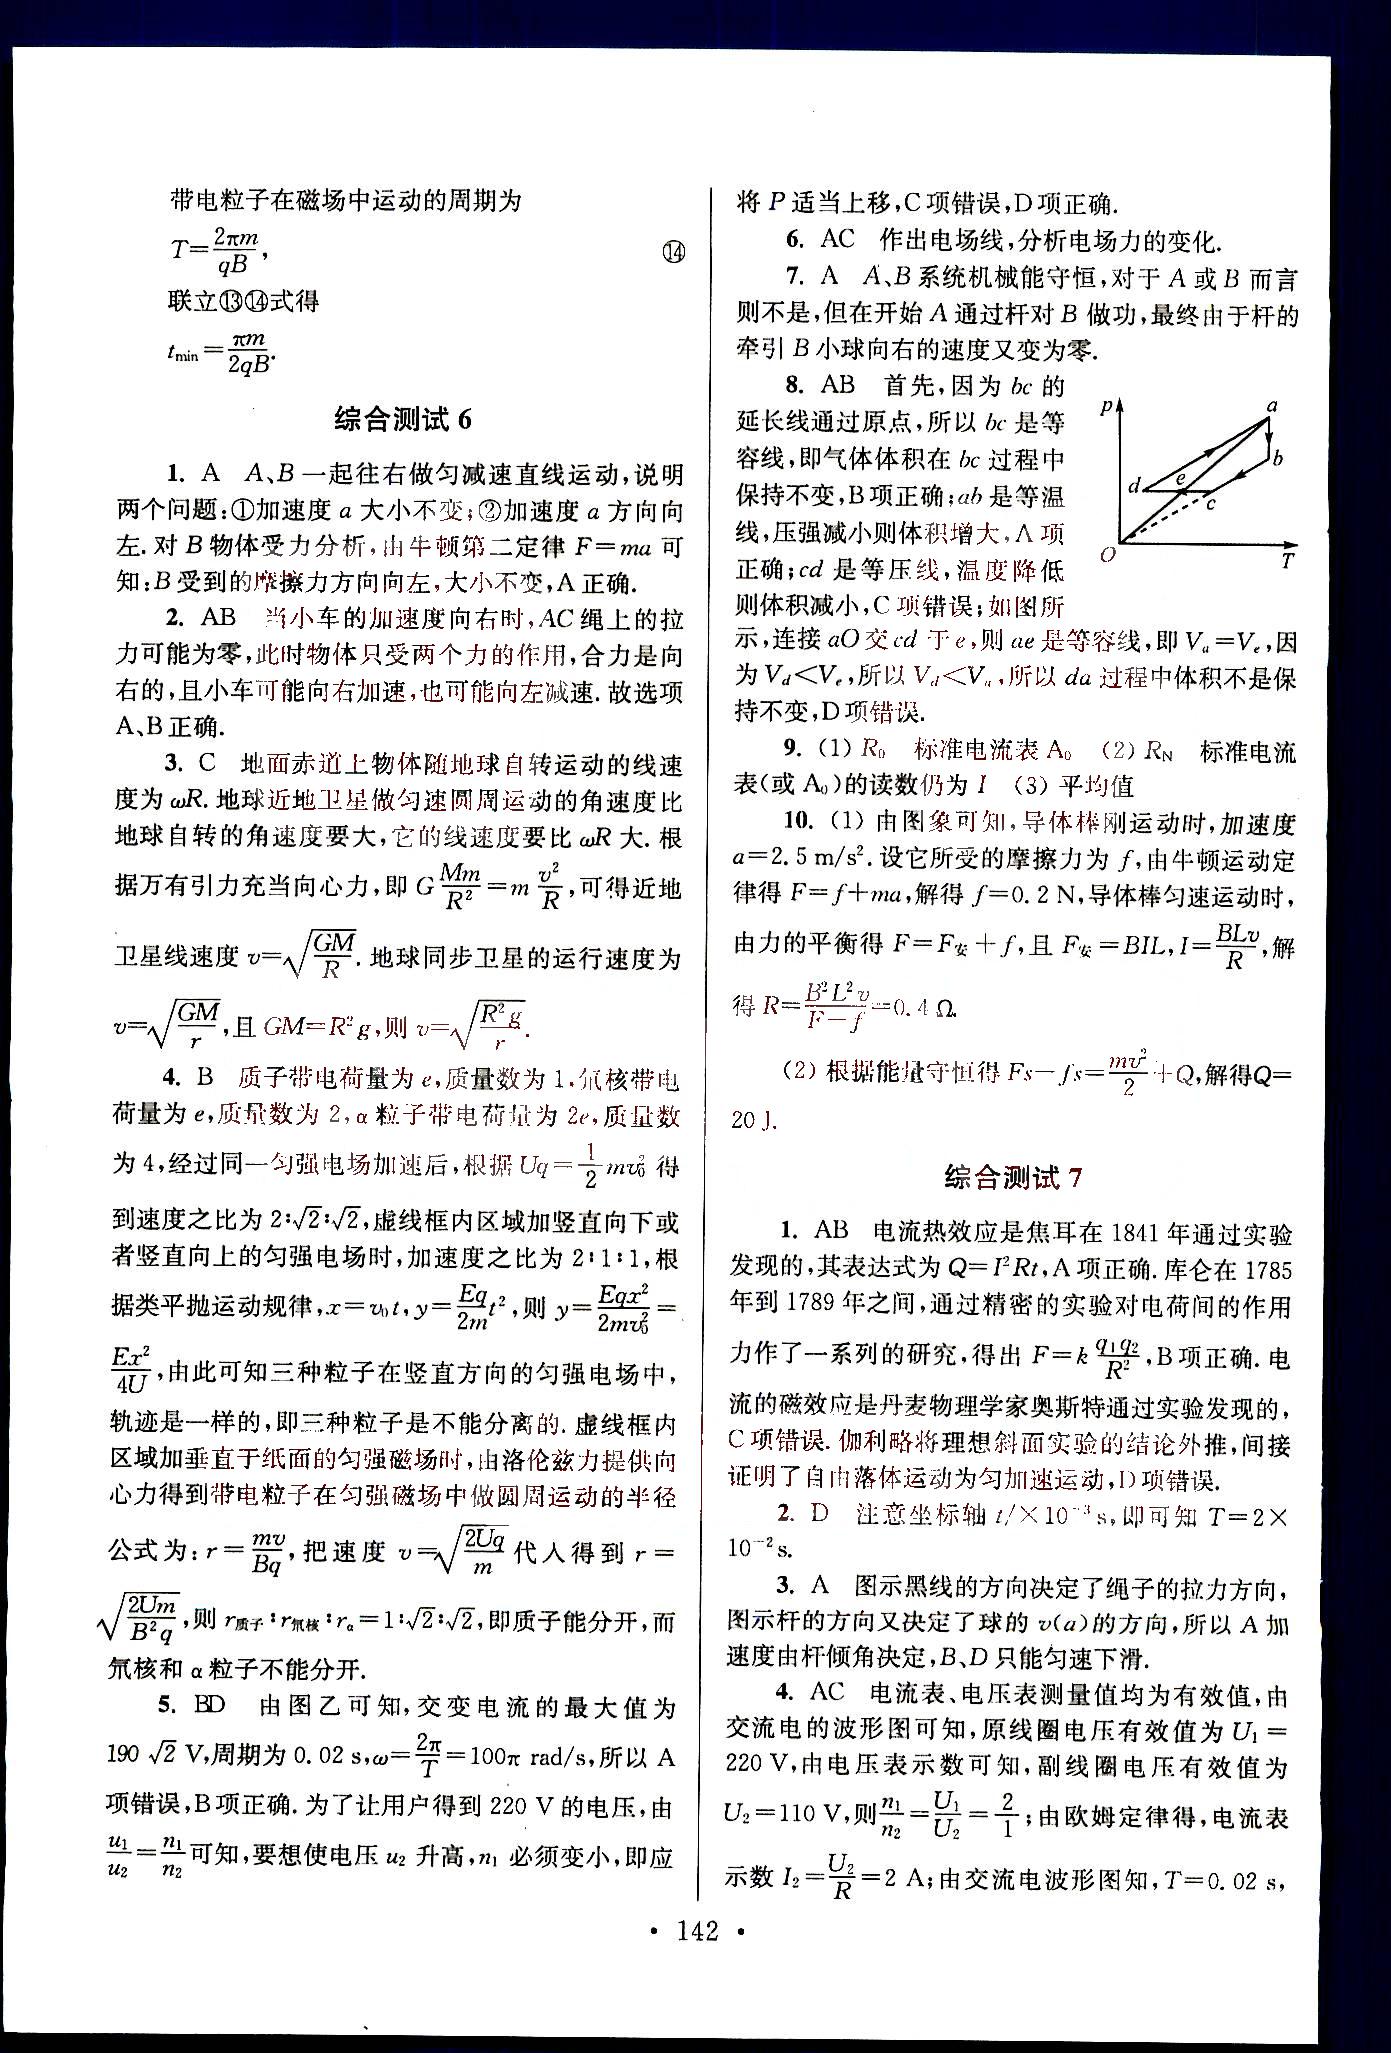 带电粒子在磁场中运动的周期为
T=2πm/qB, ⑭
联立⑬⑭式得
tmin=πm/2qB.
综合测试 6
1. A A、B 一起往右做匀减速直线运动,说明
两个问题:①加速度 a 大小不变;②加速度 a 方向向
左. 对 B 物体受力分析,由牛顿第二定律 F=ma 可
知:B 受到的摩擦力方向向左,大小不变,A 正确.
2. AB 当小车的加速度向右时,AC 绳上的拉
力可能为零,此时物体只受两个力的作用,合力是向
右的,且小车可能向右加速,也可能向左减速. 故选项
A、B 正确.
3. C 地面赤道上物体随地球自转运动的线速
度为 ωR. 地球近地卫星做匀速圆周运动的角速度比
地球自转的角速度要大,它的线速度要比 ωR 大. 根
据万有引力充当向心力,即 G Mm/R²=m v²/R,可得近地
卫星线速度 v=√(GM/R). 地球同步卫星的运行速度为
v=√(GM/r),且 GM=R²g,则 v=√(R²g/r).
4. B 质子带电荷量为 e,质量数为 1,氘核带电
荷量为 e,质量数为 2,α 粒子带电荷量为 2e,质量数
为 4,经过同一匀强电场加速后,根据 Uq=1/2 mv₀² 得
到速度之比为 2∶√2∶√2,虚线框内区域加竖直向下或
者竖直向上的匀强电场时,加速度之比为 2∶1∶1,根
据类平抛运动规律,x=v₀t,y=Eq/2m t²,则 y=Eqx²/2mv₀²=
Ex²/4U,由此可知三种粒子在竖直方向的匀强电场中,
轨迹是一样的,即三种粒子是不能分离的. 虚线框内
区域加垂直于纸面的匀强磁场时,由洛伦兹力提供向
心力得到带电粒子在匀强磁场中做圆周运动的半径
公式为:r=mv/Bq,把速度 v=√(2Uq/m) 代人得到 r=
√(2Um/B²q),则 r质子∶r氘核∶rα=1∶√2∶√2,即质子能分开,而
氘核和 α 粒子不能分开.
5. BD 由图乙可知,交变电流的最大值为
190√2 V,周期为 0.02 s,ω=2π/T=100π rad/s,所以 A
项错误,B 项正确. 为了让用户得到 220 V 的电压,由
u₁/u₂=n₁/n₂可知,要想使电压 u₂ 升高,n₁ 必须变小,即应
将 P 适当上移,C 项错误,D 项正确.
6. AC 作出电场线,分析电场力的变化.
7. A A、B 系统机械能守恒,对于 A 或 B 而言
则不是,但在开始 A 通过杆对 B 做功,最终由于杆的
牵引 B 小球向右的速度又变为零.
8. AB 首先,因为 bc 的
延长线通过原点,所以 bc 是等
容线,即气体体积在 bc 过程中
保持不变,B 项正确;ab 是等温
线,压强减小则体积增大,A 项
正确;cd 是等压线,温度降低
则体积减小,C 项错误;如图所
示,连接 aO 交 cd 于 e,则 ae 是等容线,即 Va=Ve,因
为 Vd<Ve,所以 Vd<Va,所以 da 过程中体积不是保
持不变,D 项错误.
p
a
b
d
e
c
O
T
9. (1) R₀ 标准电流表 A₀ (2) RN 标准电流
表(或 A₀)的读数仍为 I (3) 平均值
10. (1) 由图象可知,导体棒刚运动时,加速度
a=2.5 m/s². 设它所受的摩擦力为 f,由牛顿运动定
律得 F=f+ma,解得 f=0.2 N,导体棒匀速运动时,
由力的平衡得 F=F安+f,且 F安=BIL,I=BLv/R,解
得 R=B²L²v/F-f=0.4 Ω.
(2) 根据能量守恒得 Fs-fs=mv²/2+Q,解得Q=
20 J.
综合测试 7
1. AB 电流热效应是焦耳在 1841 年通过实验
发现的,其表达式为 Q=I²Rt,A 项正确. 库仑在 1785
年到 1789 年之间,通过精密的实验对电荷间的作用
力作了一系列的研究,得出 F=k q₁q₂/R²,B 项正确. 电
流的磁效应是丹麦物理学家奥斯特通过实验发现的,
C 项错误. 伽利略将理想斜面实验的结论外推,间接
证明了自由落体运动为匀加速运动,D 项错误.
2. D 注意坐标轴 t/×10⁻³ s,即可知 T=2×
10⁻² s.
3. A 图示黑线的方向决定了绳子的拉力方向,
图示杆的方向又决定了球的 v(a)的方向,所以 A 加
速度由杆倾角决定,B、D 只能匀速下滑.
4. AC 电流表、电压表测量值均为有效值,由
交流电的波形图可知,原线圈电压有效值为 U₁=
220 V,由电压表示数可知,副线圈电压有效值为
U₂=110 V,则n₁/n₂=U₁/U₂=2/1;由欧姆定律得,电流表
示数 I₂=U₂/R=2 A;由交流电波形图知,T=0.02 s,
• 142 •